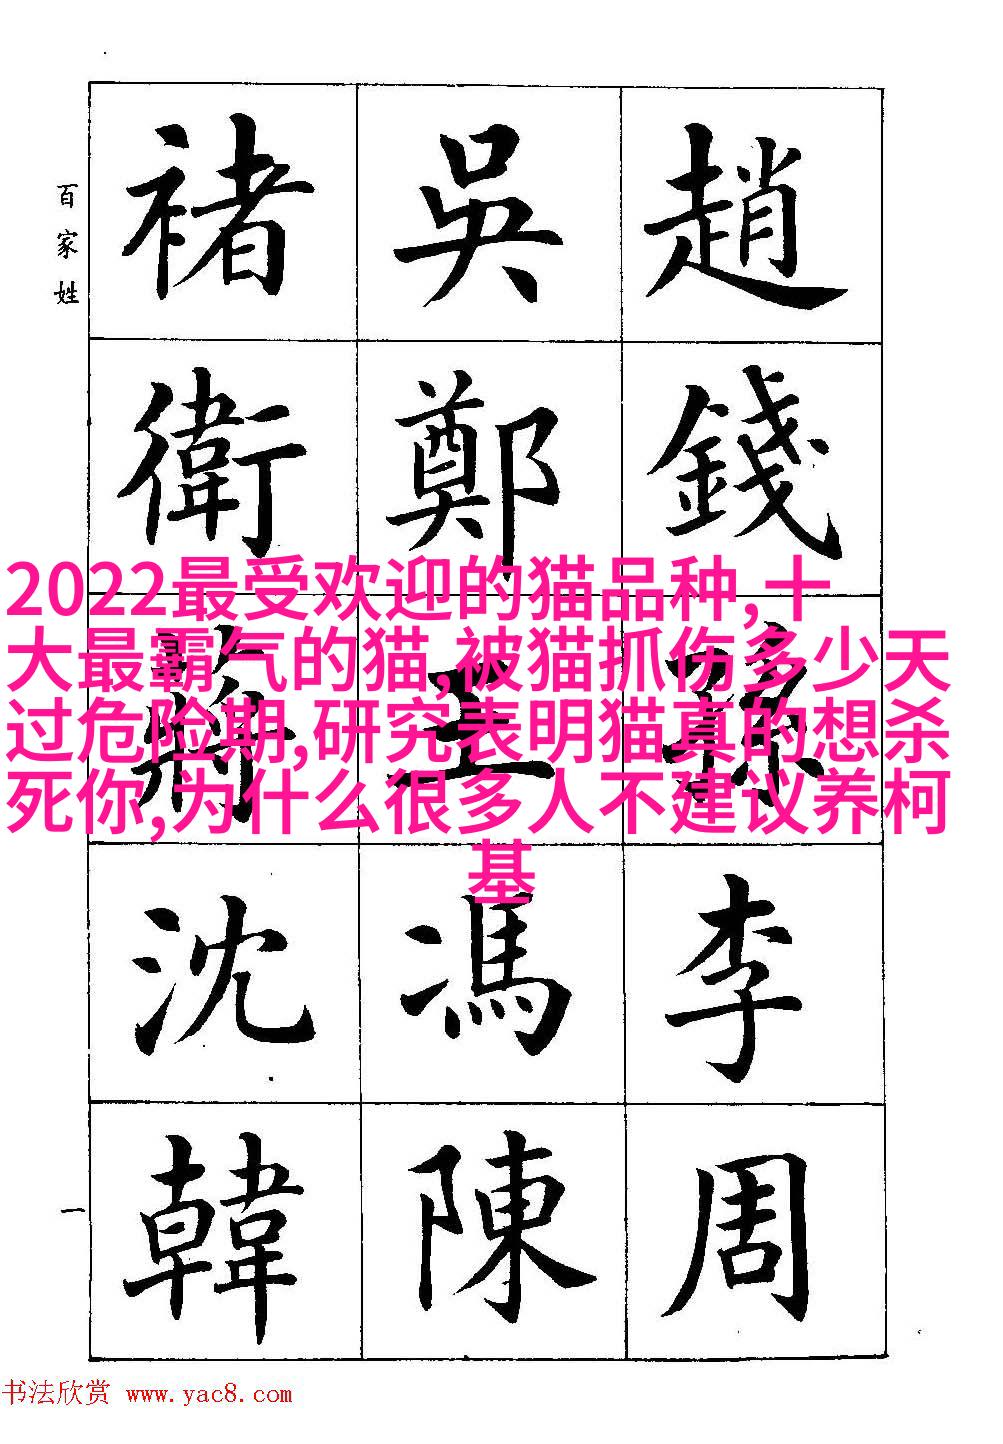 百家姓
趙錢孫李周
吳鄭王馮陳
褚衛蔣沈韓
一
2022最受欢迎的猫品种,十
大最霸气的猫,被猫抓伤多少天
过危险期,研究表明猫真的想杀
死你,为什么很多人不建议养柯
基
书法欣赏 www.yac8.com